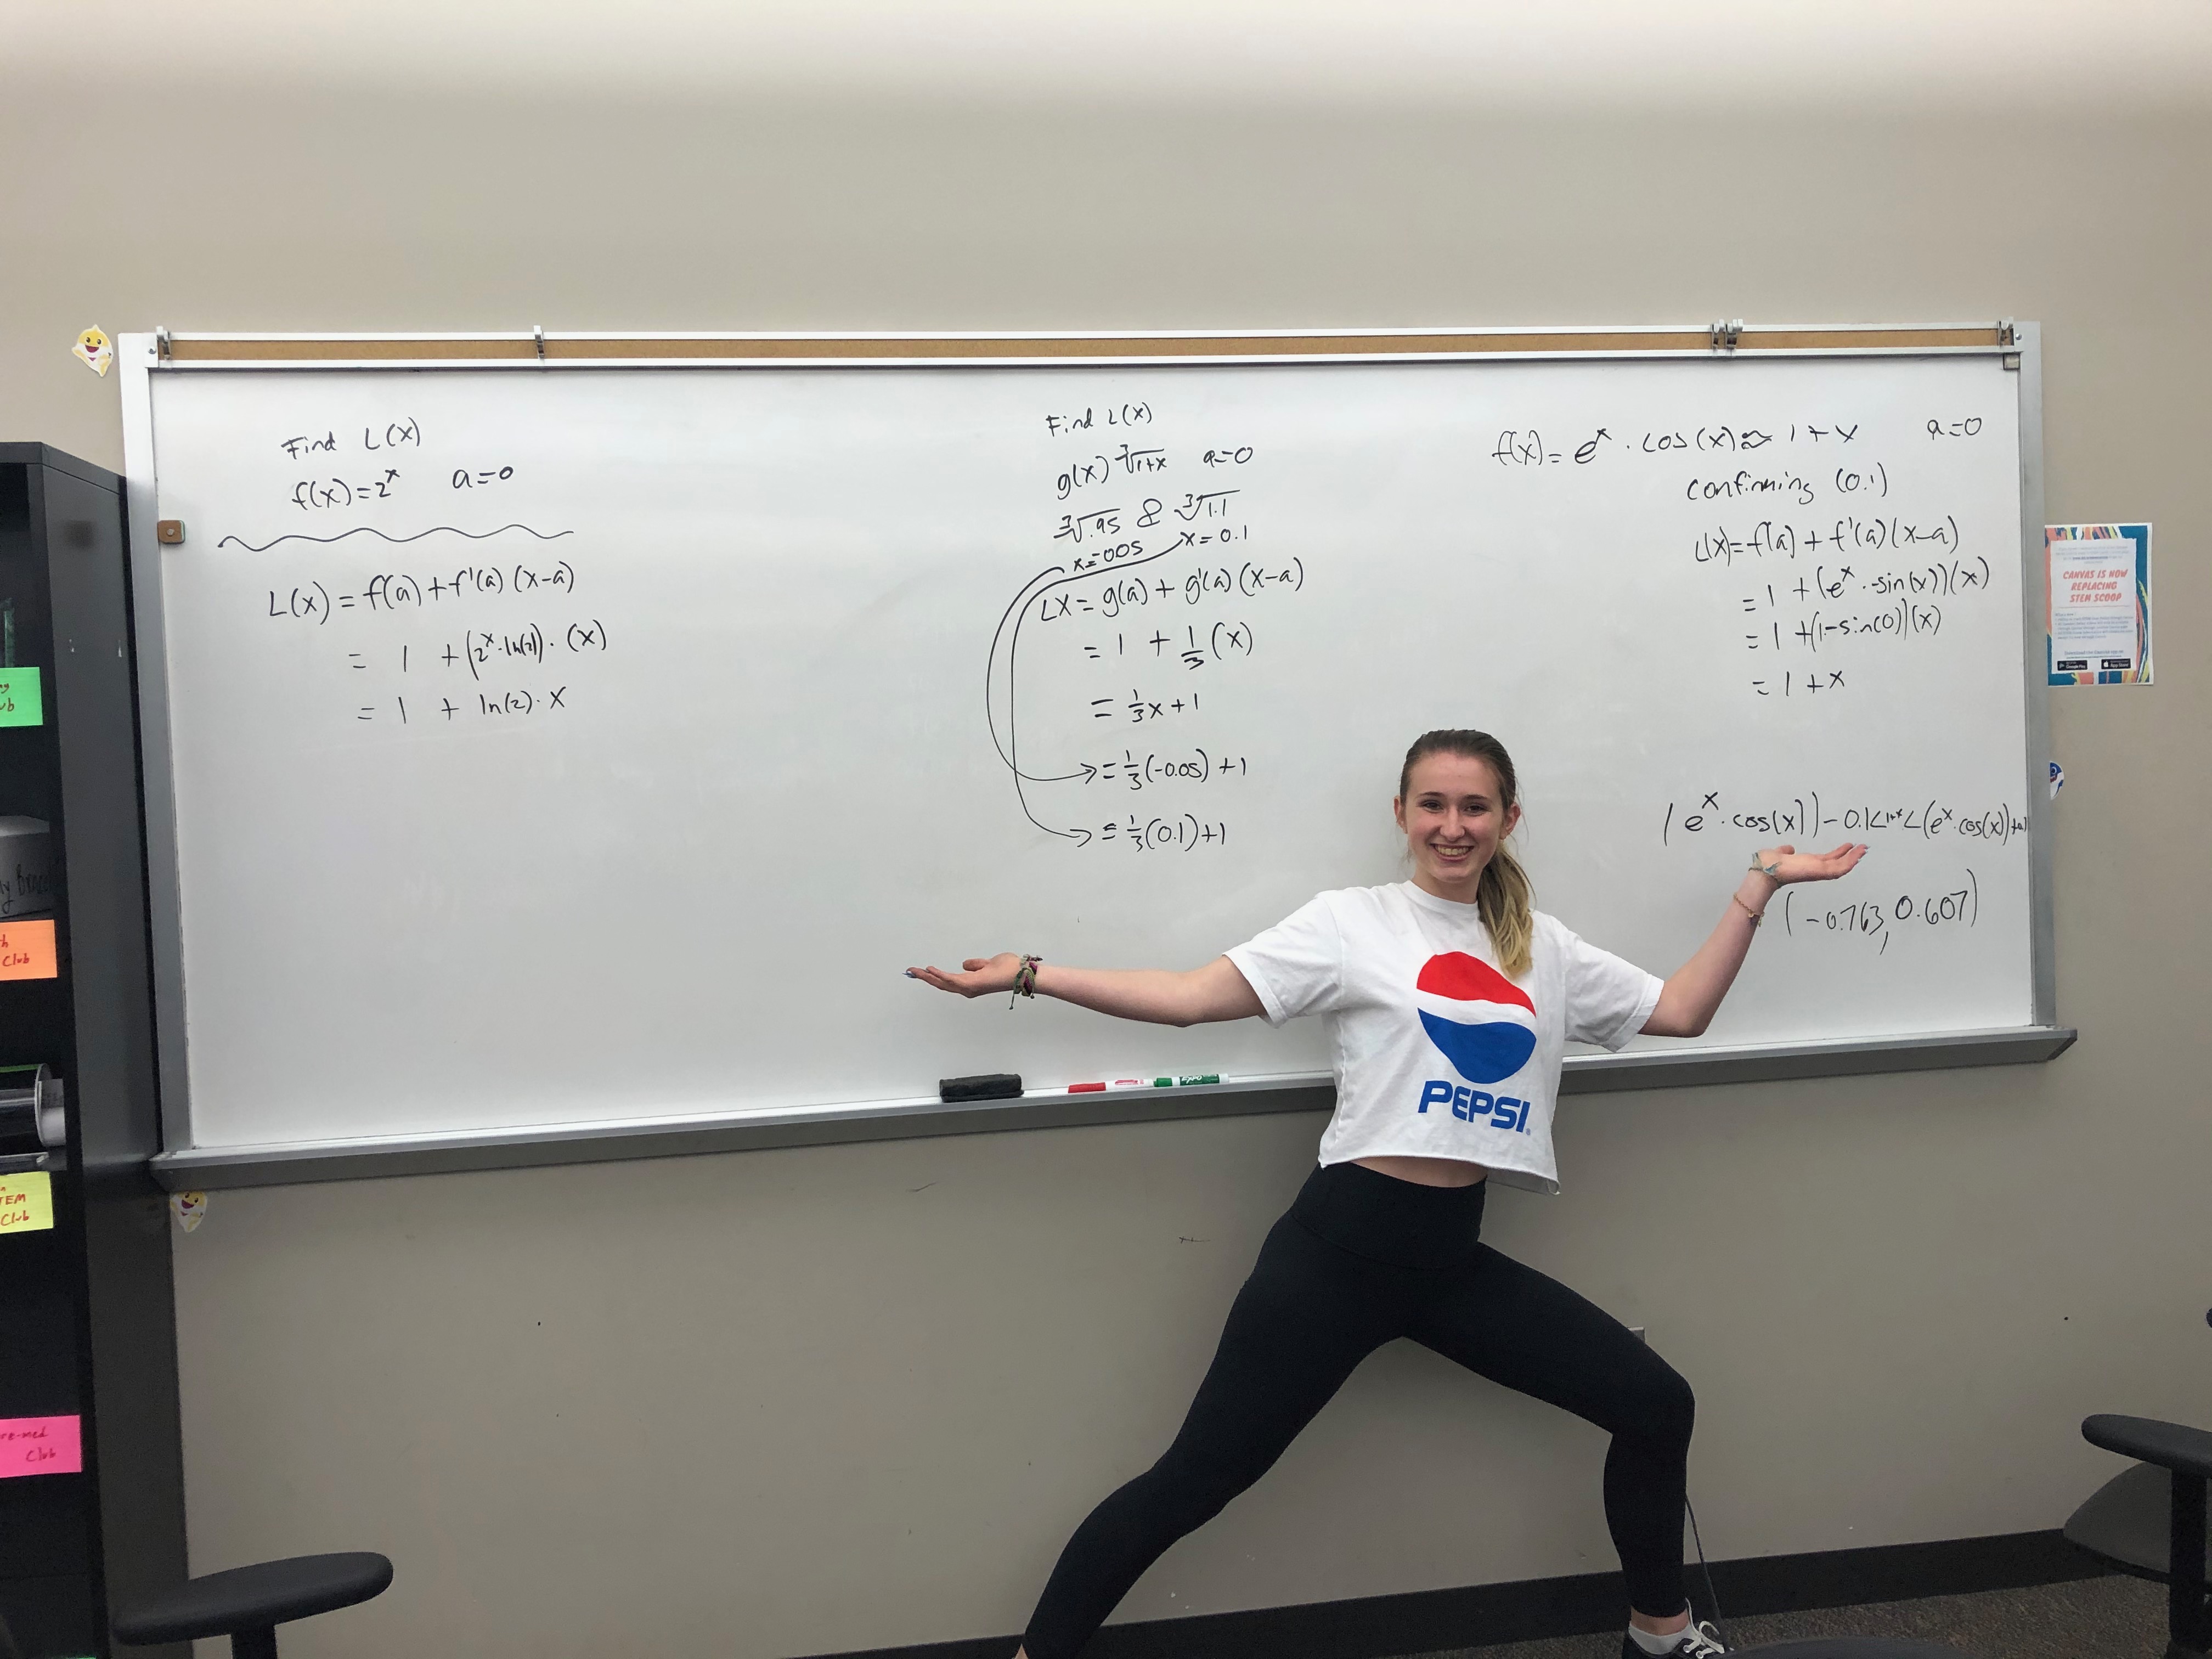 Find L(x)
f(x)=2^x a=0
L(x) = f(a)+f'(a)(x-a)
= 1 +(2^x·ln(2))·(x)
= 1 + ln(2)·x
Find L(x)
g(x) ∛1+x a=0
∛.95 & ∛1.1
x=005 x=0.1
LX = g(a) + g'(a)(x-a)
= 1 + 1/3 (x)
= 1/3x+1
= 1/3(-0.05)+1
= 1/3(0.1)+1
f(x)= e^x · cos(x) ≈ 1+x a=0
confirming (0.1)
L(x)=f(a) + f'(a)(x-a)
= 1 +(e^x·-sin(x))(x)
= 1 +(1-sin(0))(x)
= 1+x
(e^x·cos(x))-0.1<1+x<(e^x·cos(x))+0.1
(-0.763, 0.607)
CANVAS IS NOW
REPLACING
STEM SCOOP
Google Play
App Store
PEPSI
Club
TEM
Club
Club